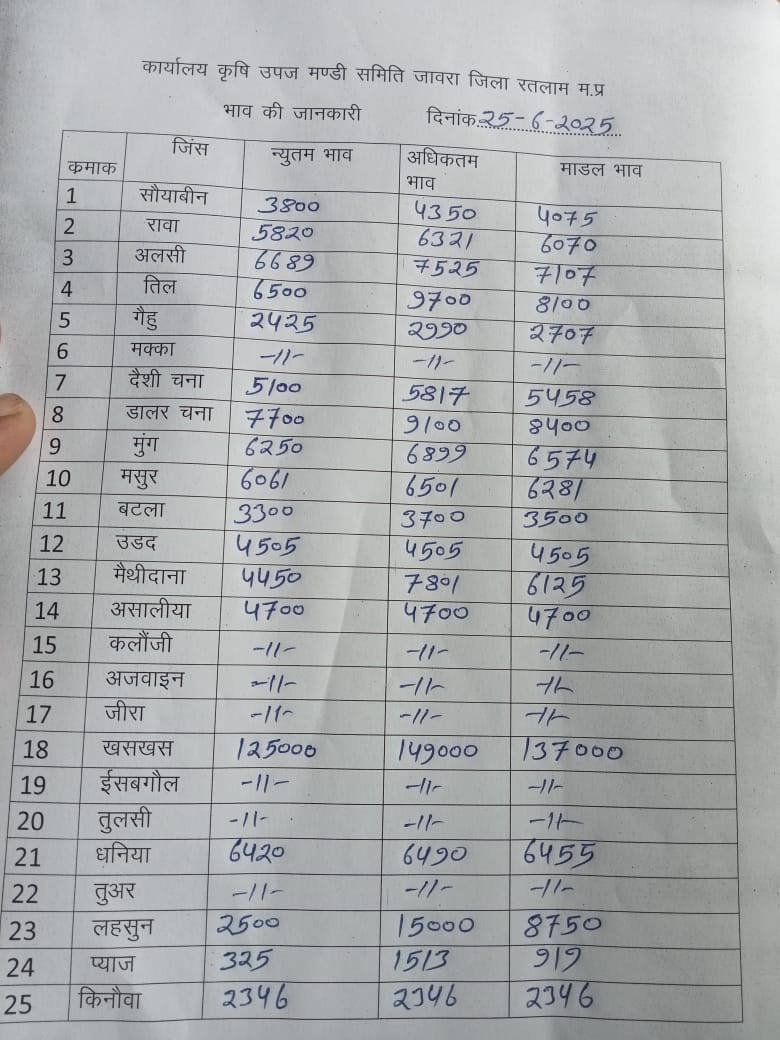 कार्यालय कृषि उपज मण्डी समिति जावरा जिला रतलाम म.प्र
भाव की जानकारी दिनांक 25-6-2025
कमाक जिंस न्युतम भाव अधिकतम भाव माडल भाव
1 सौयाबीन 3800 4350 4075
2 रावा 5820 6321 6070
3 अलसी 6689 7525 7107
4 तिल 6500 9700 8100
5 गैहु 2425 2990 2707
6 मक्का -11- -11- -11-
7 दैशी चना 5100 5817 5458
8 डालर चना 7700 9100 8400
9 मुंग 6250 6899 6574
10 मसुर 6061 6501 6281
11 बटला 3300 3700 3500
12 उडद 4505 4505 4505
13 मैथीदाना 4450 7801 6125
14 असालीया 4700 4700 4700
15 कलौंजी -11- -11- -11-
16 अजवाइन -11- -11- -11-
17 जीरा -11- -11- -11-
18 खसखस 125000 149000 137000
19 ईसबगौल -11- -11- -11-
20 तुलसी -11- -11- -11-
21 धनिया 6420 6490 6455
22 तुअर -11- -11- -11-
23 लहसुन 2500 15000 8750
24 प्याज 325 1513 919
25 किनौवा 2346 2346 2346